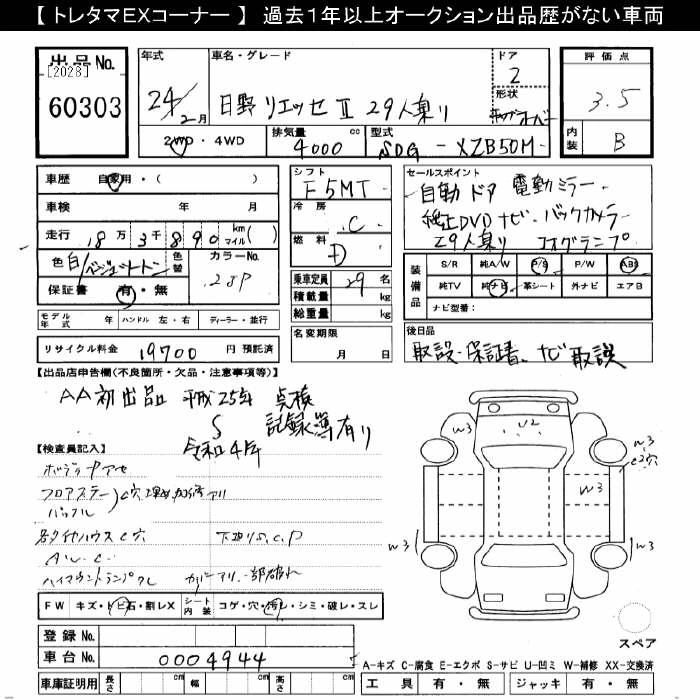 【 トレタマEXコーナー 】 過去1年以上オークション出品歴がない車両
出品No.
[2028]
60303
年式
24年2月
車名・グレード
日野 リエッセⅡ 29人乗り
ドア
2
形状
評価点
3.5
内装
B
2WD・4WD
排気量
4000 cc
型式
SDG - XZB50M-
車歴 自家用・( )
車検 年 月
走行 18万3千890 km(マイル)
色 白/ベージュツートン
色替
カラーNo.
2JP
保証書 有・無
モデル年式 年 ハンドル 左・右 ディーラー・並行
リサイクル料金 19700 円 預託済
シフト
F5MT
冷房
C
燃料
D
乗車定員 29 名
積載量 kg
総重量 kg
名変期限
月 日
セールスポイント
自動ドア 電動ミラー
純正DVDナビ・バックカメラ
29人乗り フォグランプ
装備品
S/R 純A/W P/S P/W ABS
純TV 純ナビ 革シート 外ナビ エアB
ナビ型番:
後日品
取説・保証書、ナビ取説
【出品店申告欄(不良箇所・欠品・注意事項等)】
AA初出品 平成25年 点検
S 記録簿有り
令和4年
【検査員記入】
ボディサナセ
フロアステー
バッフル
C穴
アリ
各タイヤハウスC穴 下廻りS.C.P
A.U.C.
ハイマウントランプクレ カバーアリ、一部破れ
FW キズ・トビ石・割レX シート内装 コゲ・穴・汚レ・シミ・破レ・スレ
登録No.
車台No. 0004944
車庫証明用 長さ cm 幅 cm 高さ cm
W3
U2
W3
C2穴
W3
W3
W3
スペア
A-キズ C-腐食 E-エクボ S-サビ U-凹ミ W-補修 XX-交換済
工具 有・無 ジャッキ 有・無